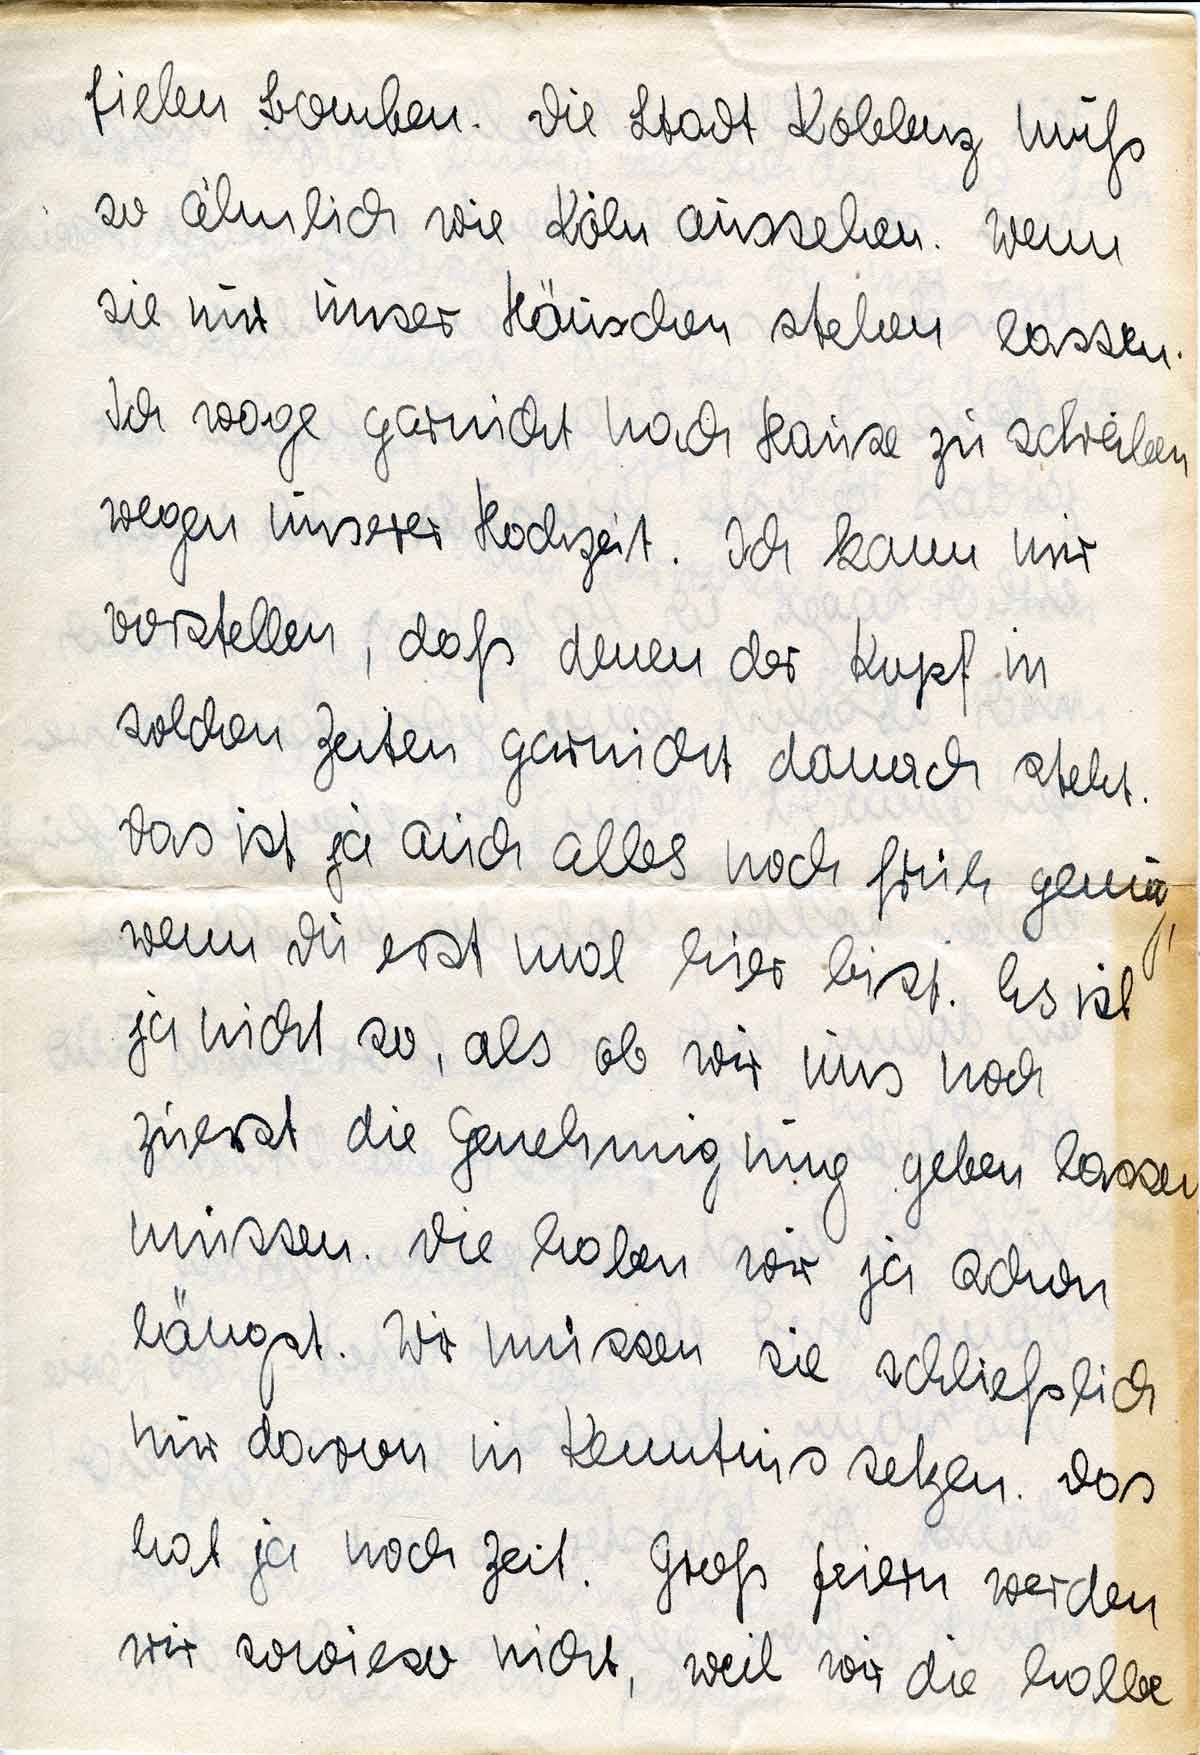 fielen Bomben. Die Stadt Koblenz muß
so ähnlich wie Köln aussehen. Wenn
sie nur unser Häuschen stehen lassen.
Ich wage garnicht nach Hause zu schreiben
wegen unserer Hochzeit. Ich kann mir
vorstellen, daß denen der Kopf in
solchen Zeiten garnicht danach steht.
Das ist ja auch alles noch früh genug,
wenn Du erst mal hier bist. Es ist
ja nicht so, als ob wir uns noch
zuerst die Genehmigung geben lassen
müssen. Die haben wir ja schon
längst. Wir müssen sie schließlich
nur davon in Kenntnis setzen. Das
hat ja noch Zeit. Groß feiern werden
wir sowieso nicht, weil wir die halbe